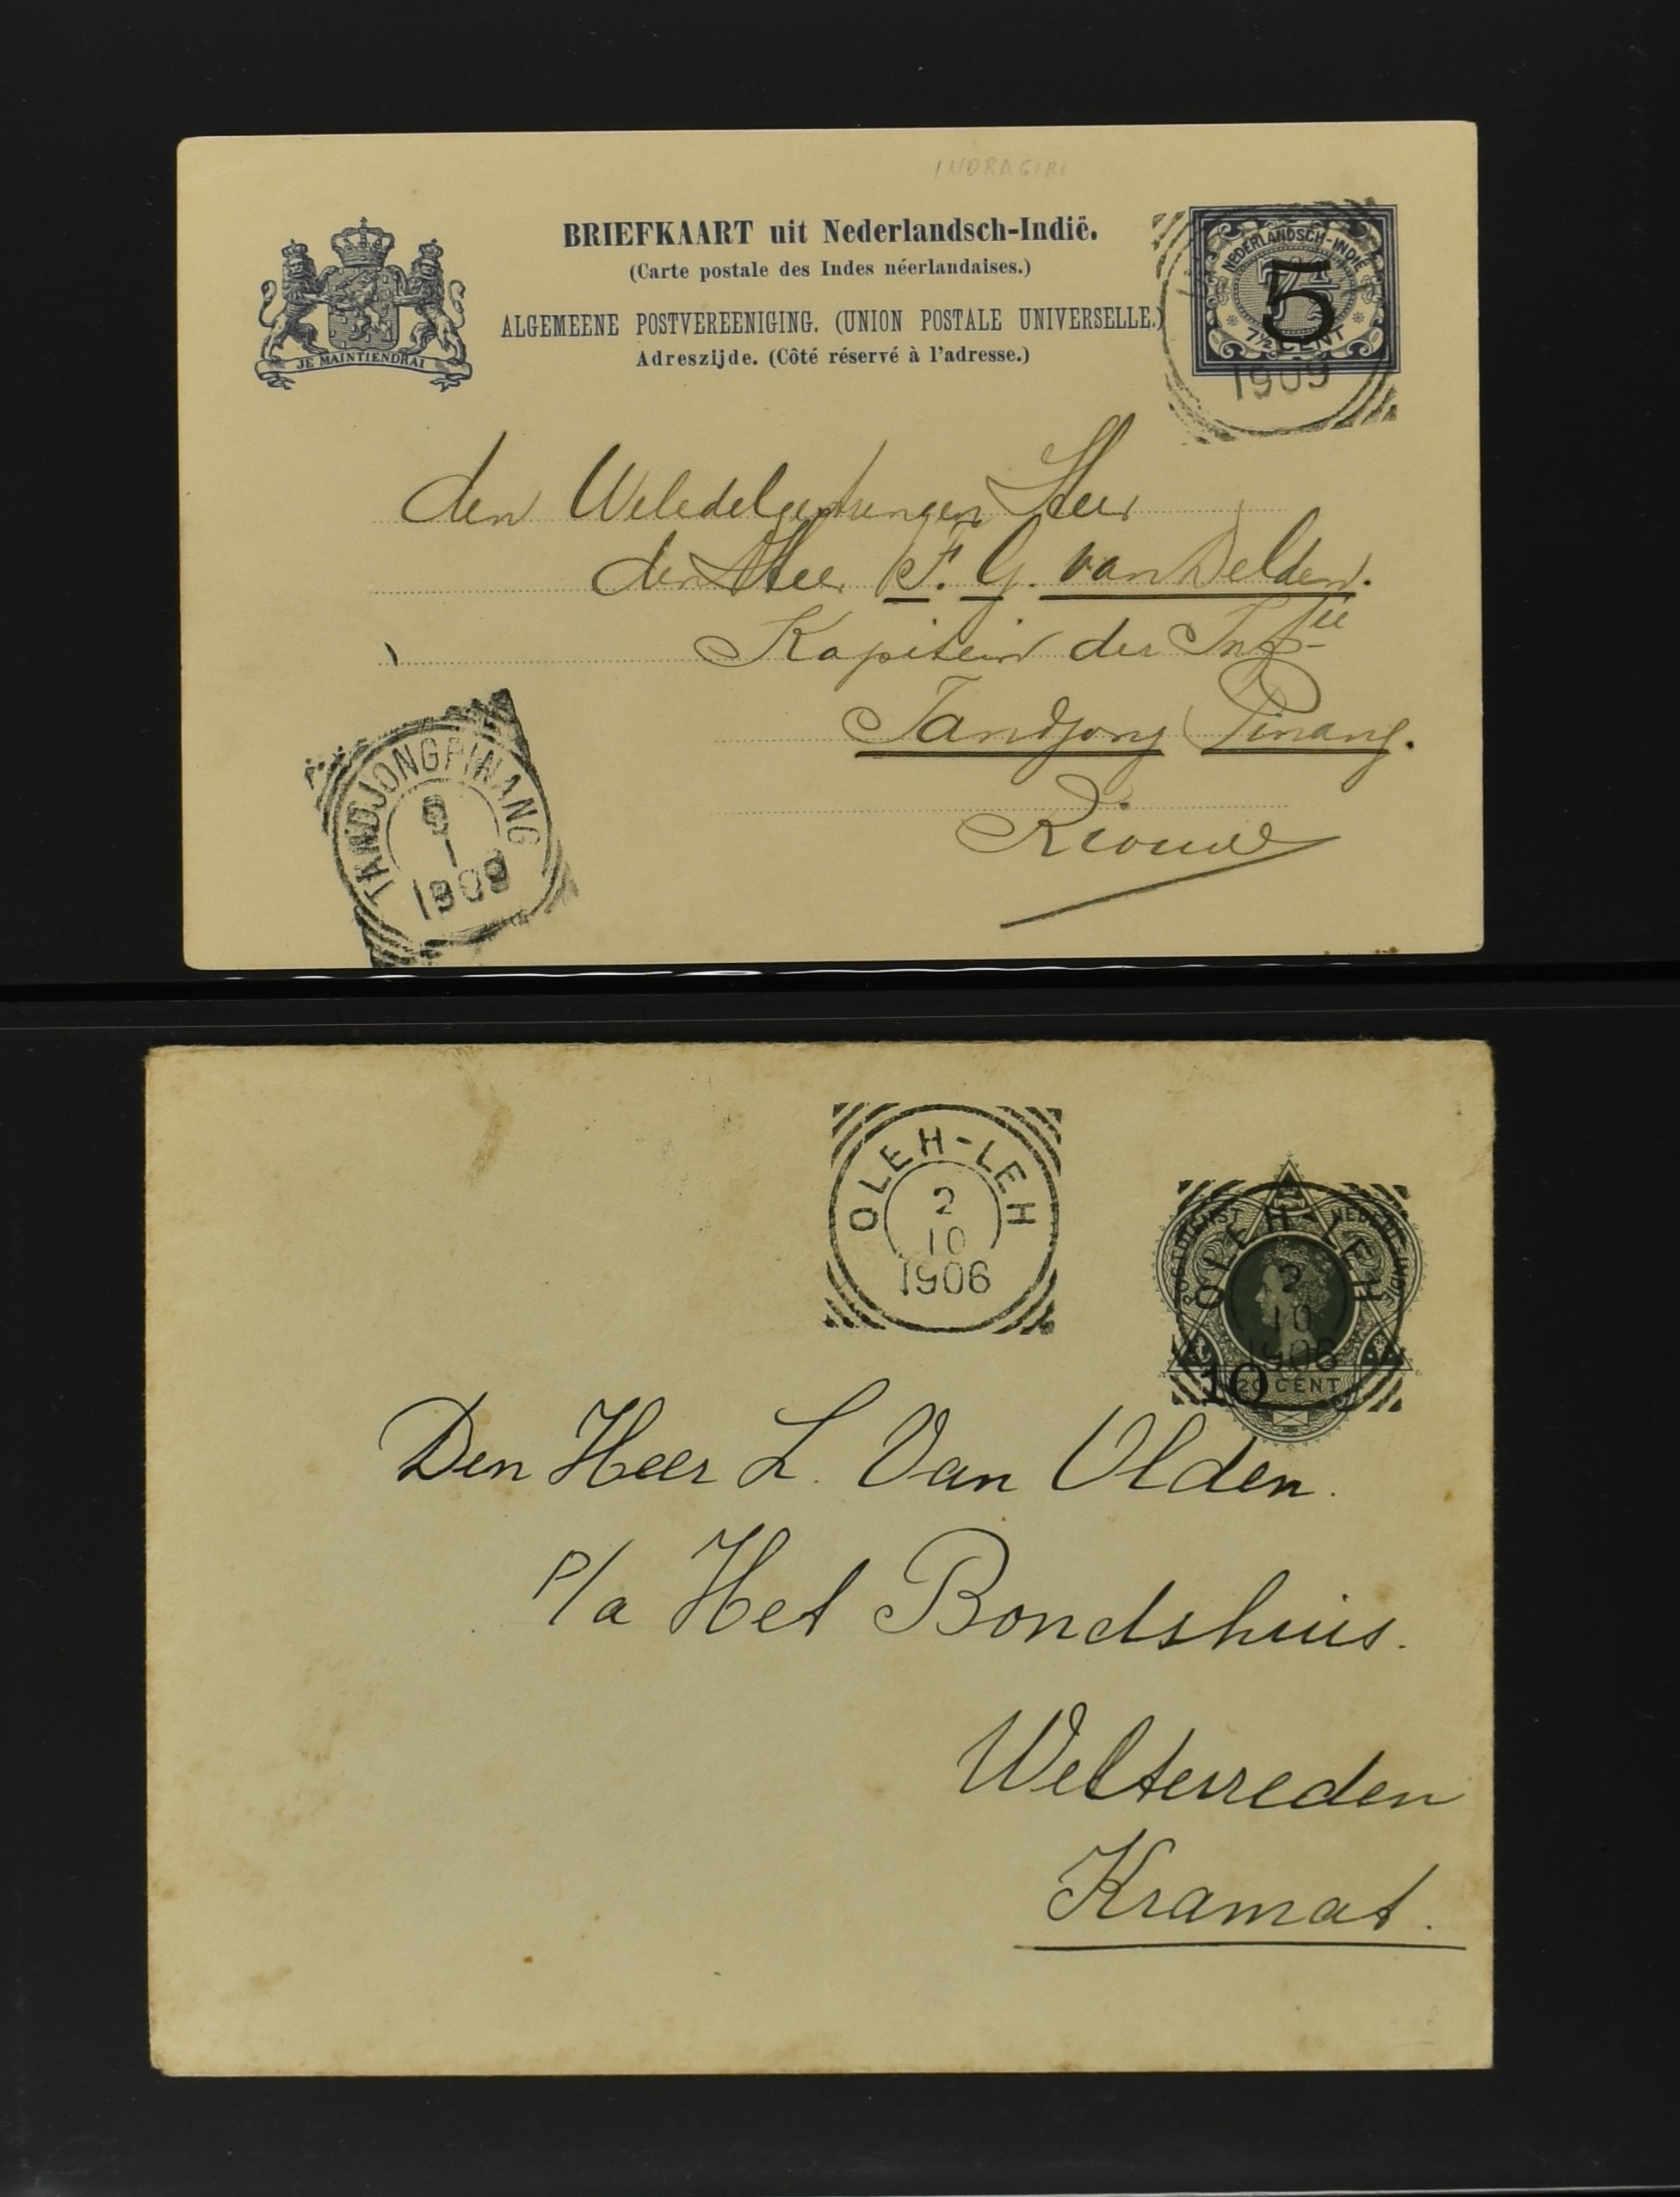 INDRAGIRI
BRIEFKAART uit Nederlandsch-Indië.
(Carte postale des Indes néerlandaises.)
ALGEMEENE POSTVEREENIGING. (UNION POSTALE UNIVERSELLE.)
Adreszijde. (Côté réservé à l'adresse.)
JE MAINTIENDRAI
NEDERLANDSCH-INDIË
5
7½ CENT
1909
den Weledelgestrengen Heer
den Heer F. G. van Delden.
Kapitein der Inf^ie
Tandjong Pinang.
Riouw
TANDJONGPINANG
1
1909
OLEH-LEH
2
10
1906
POSTDIENST NEDERL-INDIE
OLEH-LEH
2
10
1906
10
20 CENT
Den Heer L. Van Olden.
P/a Het Bondshuis.
Weltevreden
Kramat.